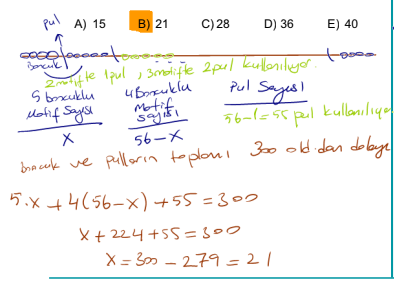 pul A) 15 B) 21 C) 28 D) 36 E) 40
Boncuk
2 motifte 1 pul, 3 motifte 2 pul kullanılıyor.
5 boncuklu 4 Boncuklu Pul Sayısı
Motif Sayısı Motif sayısı 56-1=55 pul kullanılıyo
x 56-x
boncuk ve pulların toplamı 300 old.dan dolayı
5.x + 4(56-x) + 55 = 300
x + 224 + 55 = 300
x = 300 - 279 = 21